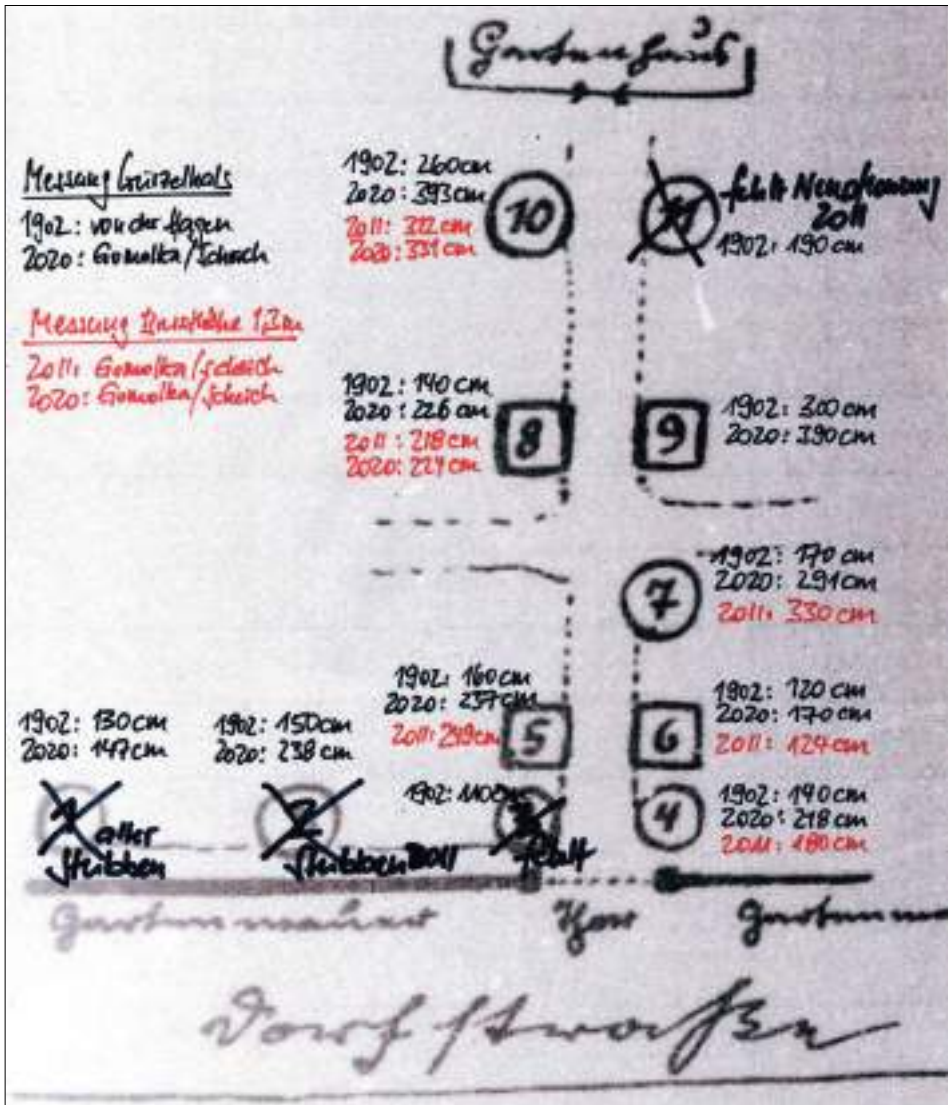 Gartenhaus
Messung Wurzelhals
1902: von der Hagen
2020: Gomolka/Scheich
Messung Brusthöhe 1,3m
2011: Gomolka/Scheich
2020: Gomolka/Scheich
1902: 260cm
2020: 393cm
2011: 322cm
2020: 331cm
10
11
fehlt Neupflanzung
2011
1902: 190cm
1902: 140cm
2020: 226cm
2011: 218cm
2020: 224cm
8
9
1902: 300cm
2020: 390cm
7
1902: 170cm
2020: 291cm
2011: 330cm
1902: 160cm
2020: 237cm
2011: 249cm
5
6
1902: 120cm
2020: 170cm
2011: 124cm
1902: 130cm
2020: 147cm
1 alter
Stubben
1902: 150cm
2020: 238cm
2
Stubben 2011
1902: 110cm
3
fehlt
4
1902: 190cm
2020: 218cm
2011: 180cm
Gartenmauer Thor Gartenm
Dorfstraße